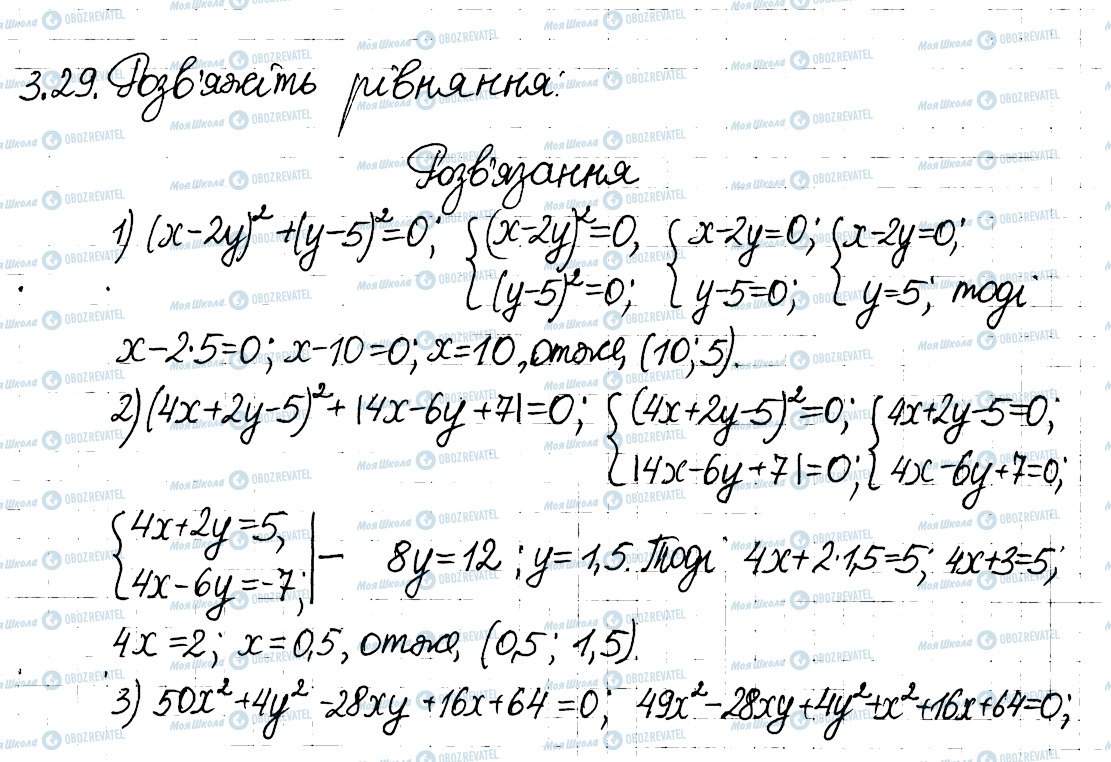 3.29. Розв'яжіть рівняння:
Розв'язання
1) (x-2y)²+(y-5)²=0; { (x-2y)²=0, (y-5)²=0; { x-2y=0; y-5=0; { x-2y=0; y=5; тоді
x-2·5=0; x-10=0; x=10, отже, (10; 5).
2) (4x+2y-5)²+|4x-6y+7|=0; { (4x+2y-5)²=0; |4x-6y+7|=0; { 4x+2y-5=0; 4x-6y+7=0;
{ 4x+2y=5, 4x-6y=-7; | – 8y=12; y=1,5. Тоді 4x+2·1,5=5; 4x+3=5;
4x=2; x=0,5, отже, (0,5; 1,5).
3) 50x²+4y²-28xy+16x+64=0; 49x²-28xy+4y²+x²+16x+64=0;